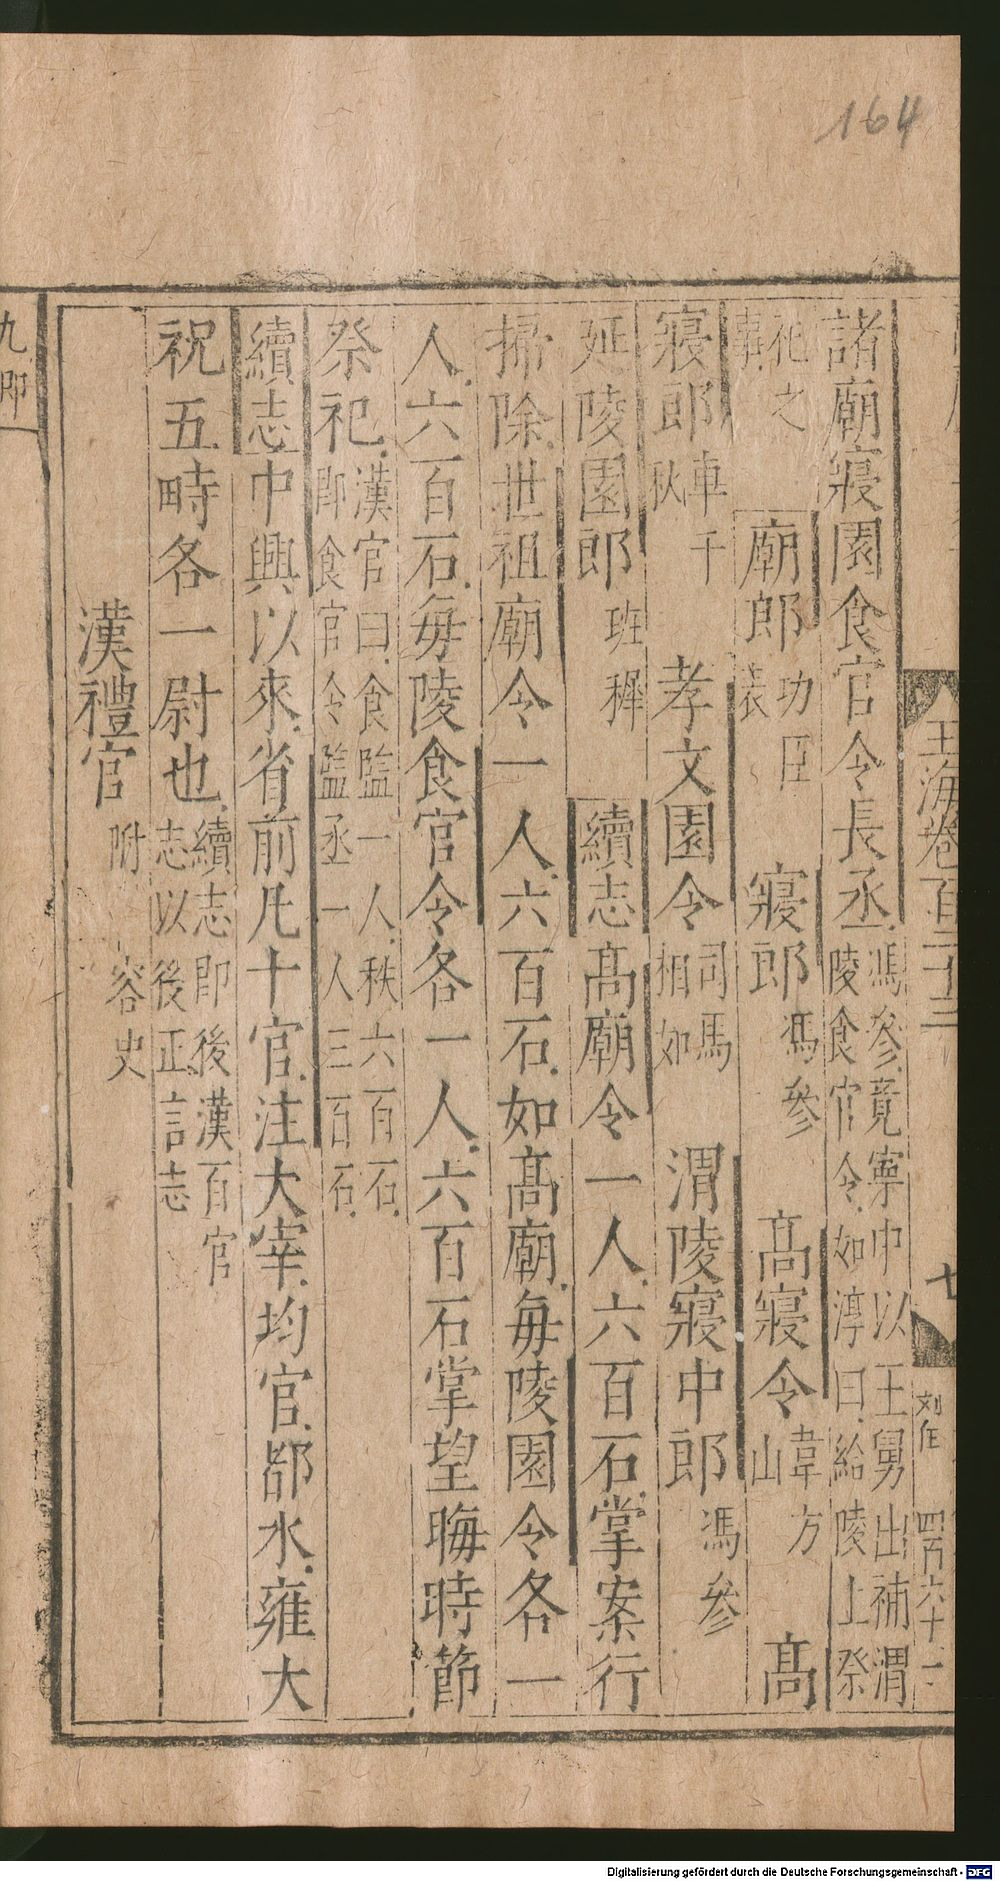 164
玉海卷百二十三
七
刘任 四百六十一
諸廟寢園食官令長丞馮參竟寧中以王舅出補渭陵食官令如淳曰給陵上祭
祀之事 廟郎功臣表 寢郎馮參 高寢令韋方山 高
寢郎車千秋 孝文園令司馬相如 渭陵寢中郎馮參
延陵園郎班穉 續志高廟令一人六百石掌案行
掃除世祖廟令一人六百石如高廟每陵園令各一
人六百石每陵食官令各一人六百石掌望晦時節
祭祀漢官曰食監一人秩六百石即食官令監丞一人三百石
續志中興以來省前凡十官注大宰均官都水雍大
祝五畤各一尉也續志即後漢百官志以後正言志
漢禮官附容史
九卿
Digitalisierung gefördert durch die Deutsche Forschungsgemeinschaft - DFG